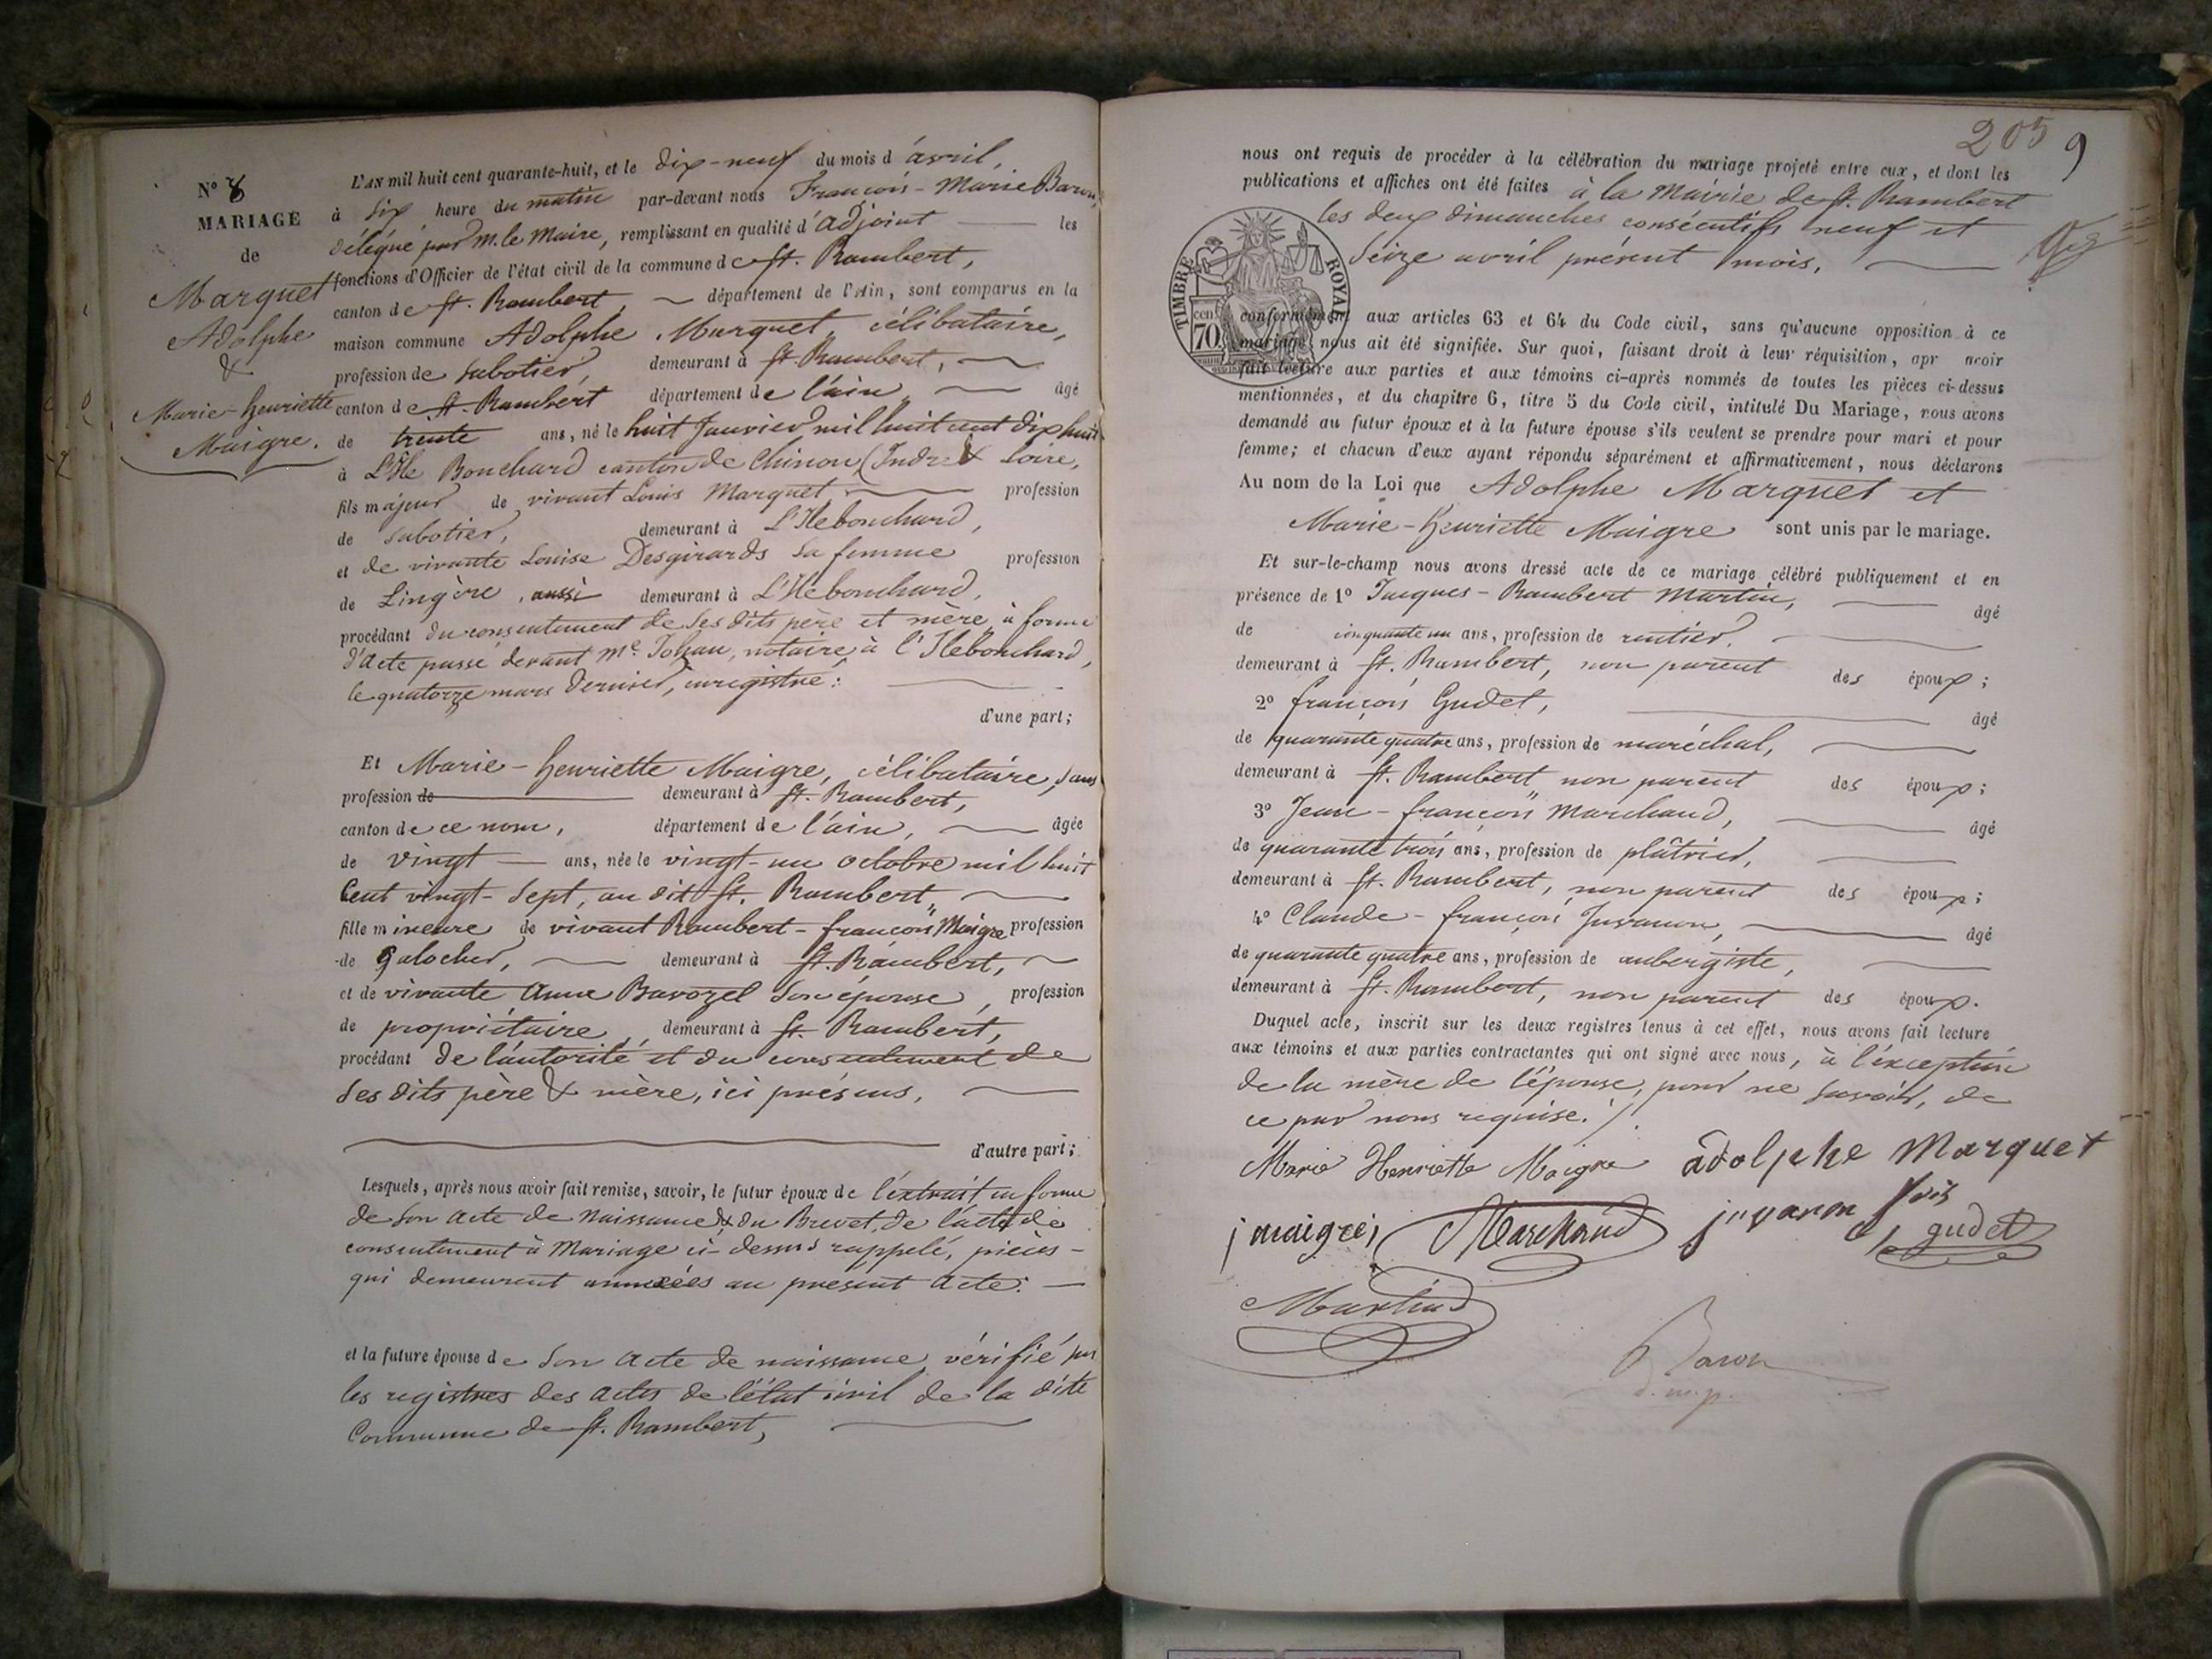 N° 8
MARIAGE
de
Marquet
Adolphe
&
Marie-henriette
Maigre.
L'AN mil huit cent quarante-huit, et le dix-neuf du mois d'avril,
à six heure du matin par-devant nous François-Marie Baron,
délégué par M. le Maire, remplissant en qualité d'adjoint les
fonctions d'Officier de l'état civil de la commune de St. Rambert,
canton de St. Rambert, département de l'Ain, sont comparus en la
maison commune Adolphe Marquet, célibataire,
profession de sabotier, demeurant à St. Rambert,
canton de St. Rambert département de l'ain, âgé
de trente ans, né le huit Janvier mil huit cent dix huit
à L'Ile Bouchard canton de Chinon (Indre & Loire,
fils majeur de vivant Louis Marquet, profession
de sabotier, demeurant à L'Ilebouchard,
et de vivante Louise Desgirards sa femme profession
de Lingère, aussi demeurant à L'Ilebouchard,
procédant du consentement de ses dits père et mère, à forme
d'acte passé devant Me. notaire à l'Ilebouchard,
le quatorze mars dernier, enregistré:
d'une part;
Et Marie-henriette Maigre, célibataire, sans
profession de demeurant à St. Rambert,
canton de ce nom, département de l'ain, âgée
de vingt ans, née le vingt-un octobre mil huit
Cent vingt-sept, au dit St. Rambert,
fille mineure de vivant Rambert-françois Maigre profession
de Galocher, demeurant à St. Rambert,
et de vivante Anne Bavozel son épouse, profession
de propriétaire, demeurant à St. Rambert,
procédant de l'autorité et du consentement de
ses dits père & mère, ici présens,
d'autre part;
Lesquels, après nous avoir fait remise, savoir, le futur époux de l'extrait en forme
de son acte de naissance & du Brevet de l'acte de
consentement à Mariage ci-dessus rappelé, pièces
qui demeurent annexées au présent acte.
et la future épouse de son acte de naissance vérifié sur
les registres des actes de l'état civil de la dite
Commune de St. Rambert,
205 9
nous ont requis de procéder à la célébration du mariage projeté entre eux, et dont les
publications et affiches ont été faites à la Mairie de St. Rambert
les deux dimanches consécutifs neuf et
Seize avril présent mois.
TIMBRE ROYAL
70 cen
conformément aux articles 63 et 64 du Code civil, sans qu'aucune opposition à ce
mariage nous ait été signifiée. Sur quoi, faisant droit à leur réquisition, apr avoir
fait lecture aux parties et aux témoins ci-après nommés de toutes les pièces ci-dessus
mentionnées, et du chapitre 6, titre 5 du Code civil, intitulé Du Mariage, nous avons
demandé au futur époux et à la future épouse s'ils veulent se prendre pour mari et pour
femme; et chacun d'eux ayant répondu séparément et affirmativement, nous déclarons
Au nom de la Loi que Adolphe Marquet et
Marie-henriette Maigre sont unis par le mariage.
Et sur-le-champ nous avons dressé acte de ce mariage célébré publiquement et en
présence de 1° Jacques-Rambert Martin, âgé
de cinquante un ans, profession de rentier,
demeurant à St. Rambert, non parent des époux;
2° françois Gudet, âgé
de quarante quatre ans, profession de maréchal,
demeurant à St. Rambert, non parent des époux;
3° Jean-françois Marchand, âgé
de quarante trois ans, profession de plâtrier,
demeurant à St. Rambert, non parent des époux;
4° Claude-françois Juvanon, âgé
de quarante quatre ans, profession de aubergiste,
demeurant à St. Rambert, non parent des époux.
Duquel acte, inscrit sur les deux registres tenus à cet effet, nous avons fait lecture
aux témoins et aux parties contractantes qui ont signé avec nous, à l'exception
de la mère de l'épouse, pour ne savoir, de
ce par nous requise.
Marie Henriette Maigre adolphe Marquet
maigre Marchand juvanon fois gudet
Martin
Baron